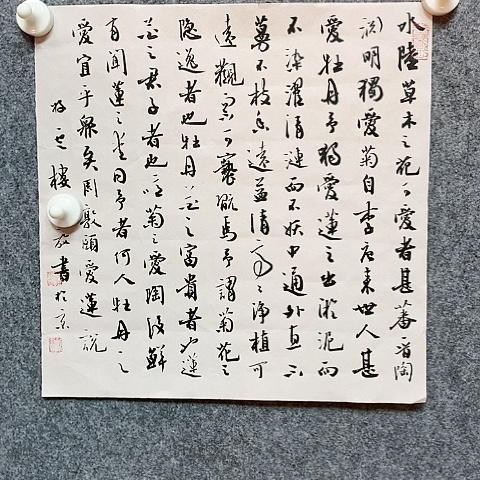 水陸草木之花可愛者甚蕃晉陶
淵明獨愛菊自李唐來世人甚
愛牡丹予獨愛蓮之出淤泥而
不染濯清漣而不妖中通外直不
蔓不枝香遠益清亭亭淨植可
遠觀而不可褻翫焉予謂菊花之
隱逸者也牡丹花之富貴者也蓮
花之君子者也噫菊之愛陶後鮮
有聞蓮之愛同予者何人牡丹之
愛宜乎衆矣周敦頤愛蓮説
樓 書於京